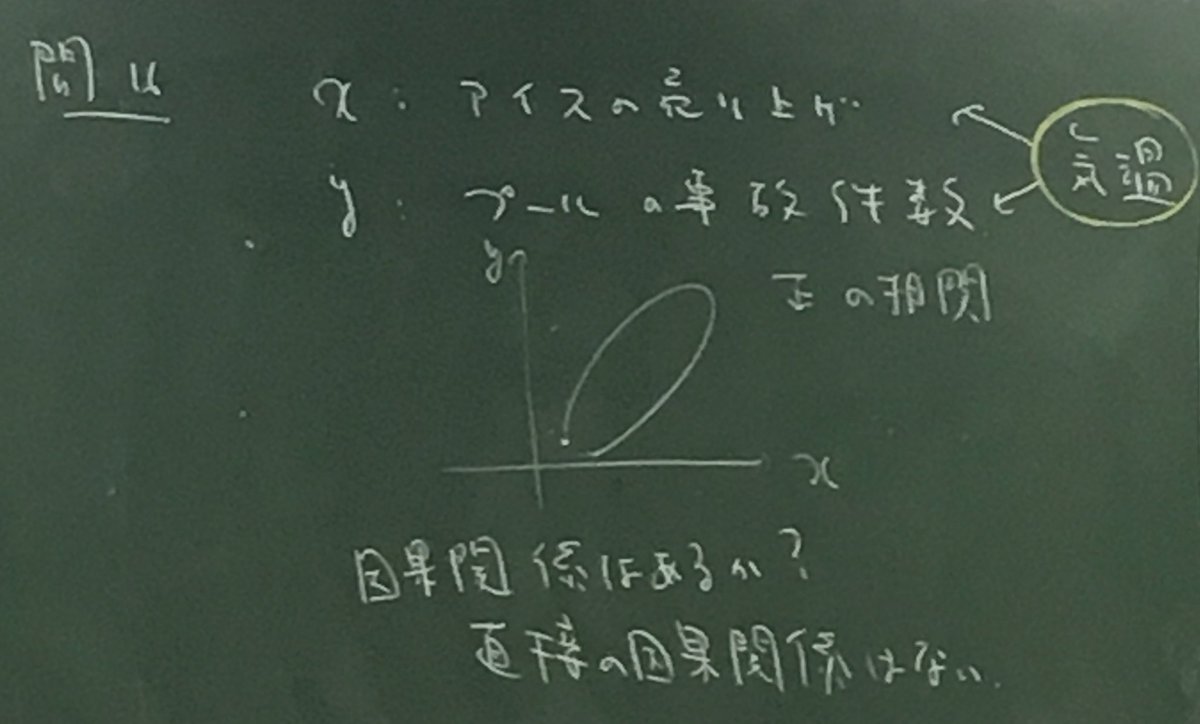 問14
x : アイスの売り上げ
気温
y : プールの事故件数
y
正の相関
x
因果関係はあるか?
直接の因果関係はない.